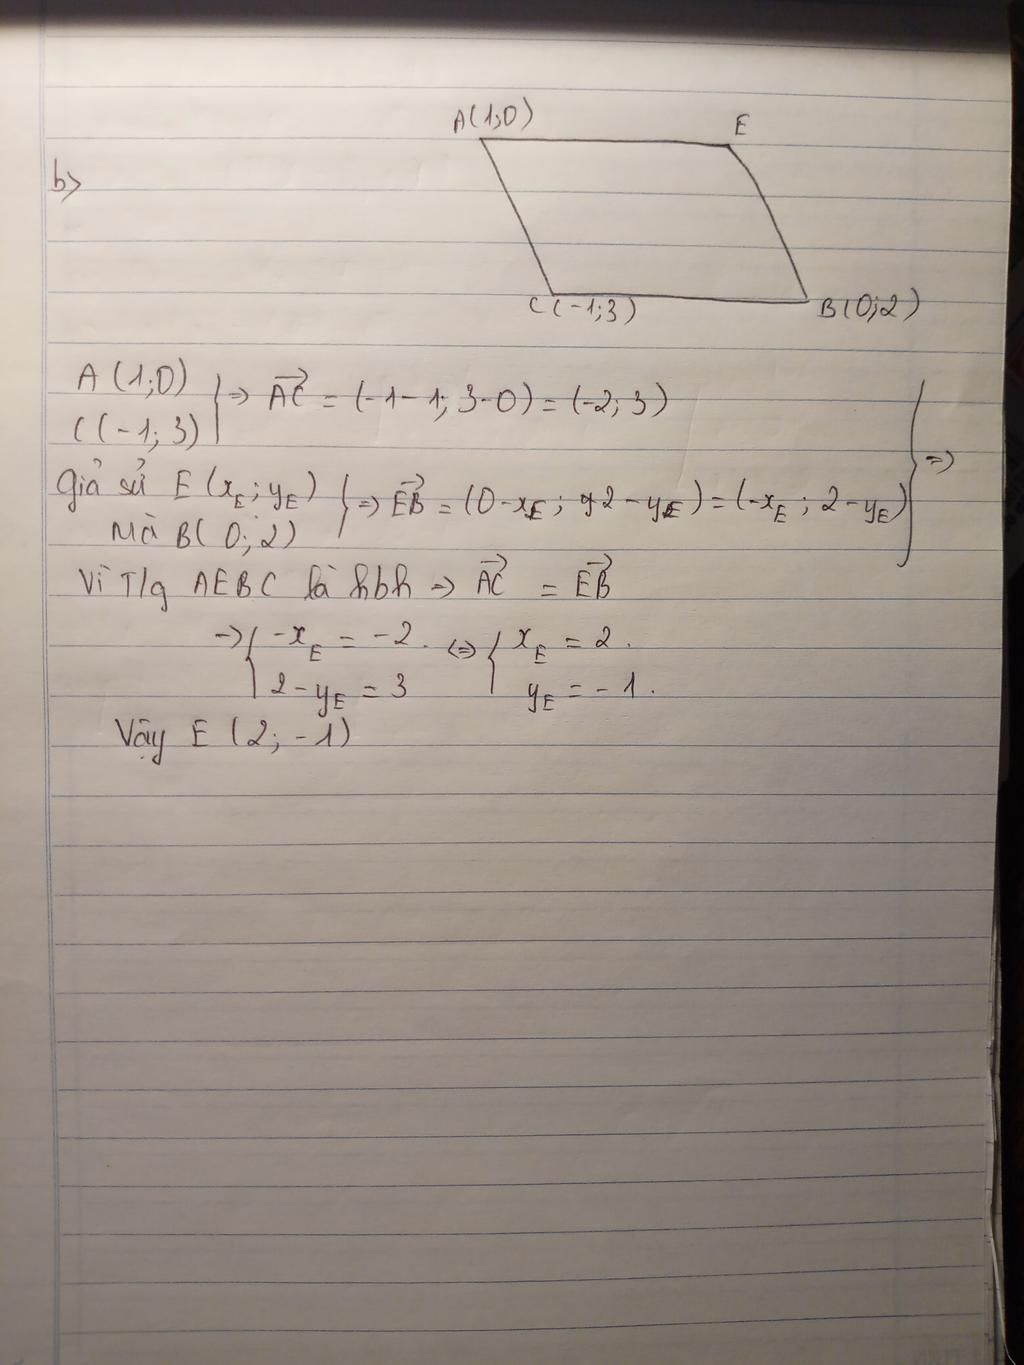 A(1;0)
E
b>
C(-1;3)
B(0;2)
A(1;0)
C(-1;3)
} => AC = (-1-1; 3-0) = (-2; 3)
Giả sử E(xE; yE)
Mà B(0;2)
} => EB = (0-xE; 2-yE) = (-xE; 2-yE) } =>
Vì T/g AEBC là hbh => AC = EB
=> { -xE = -2. <=> { xE = 2.
2-yE = 3 yE = -1.
Vậy E(2; -1)